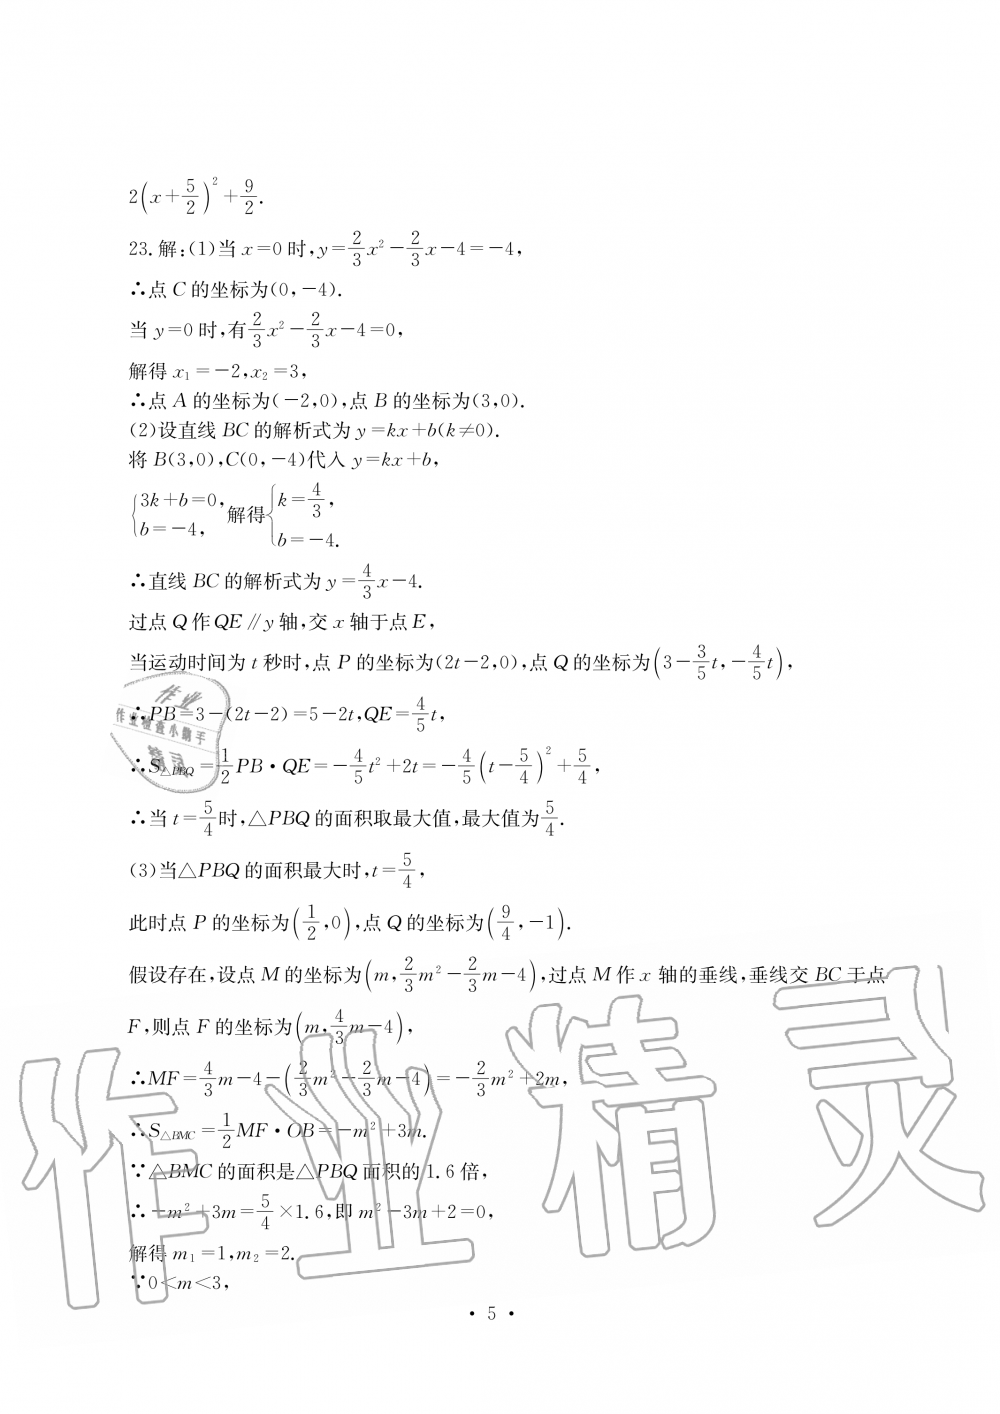 2(x+5/2)²+9/2.
23.解:(1)当 x=0 时,y=2/3x²-2/3x-4=-4,
∴点 C 的坐标为(0,-4).
当 y=0 时,有2/3x²-2/3x-4=0,
解得 x₁=-2,x₂=3,
∴点 A 的坐标为(-2,0),点 B 的坐标为(3,0).
(2)设直线 BC 的解析式为 y=kx+b(k≠0).
将 B(3,0),C(0,-4)代入 y=kx+b,
{3k+b=0, b=-4, 解得{k=4/3, b=-4.
∴直线 BC 的解析式为 y=4/3x-4.
过点 Q 作 QE∥y 轴,交 x 轴于点 E,
当运动时间为 t 秒时,点 P 的坐标为(2t-2,0),点 Q 的坐标为(3-3/5t,-4/5t),
∴PB=3-(2t-2)=5-2t,QE=4/5t,
∴S△PBQ=1/2PB·QE=-4/5t²+2t=-4/5(t-5/4)²+5/4,
∴当 t=5/4时,△PBQ 的面积取最大值,最大值为5/4.
(3)当△PBQ 的面积最大时,t=5/4,
此时点 P 的坐标为(1/2,0),点 Q 的坐标为(9/4,-1).
假设存在,设点 M 的坐标为(m,2/3m²-2/3m-4),过点 M 作 x 轴的垂线,垂线交 BC 于点
F,则点 F 的坐标为(m,4/3m-4),
∴MF=4/3m-4-(2/3m²-2/3m-4)=-2/3m²+2m,
∴S△BMC=1/2MF·OB=-m²+3m.
∵△BMC 的面积是△PBQ 面积的 1.6 倍,
∴-m²+3m=5/4×1.6,即 m²-3m+2=0,
解得 m₁=1,m₂=2.
∵0<m<3,
· 5 ·
作业
作业检查小助手
精灵
作业精灵